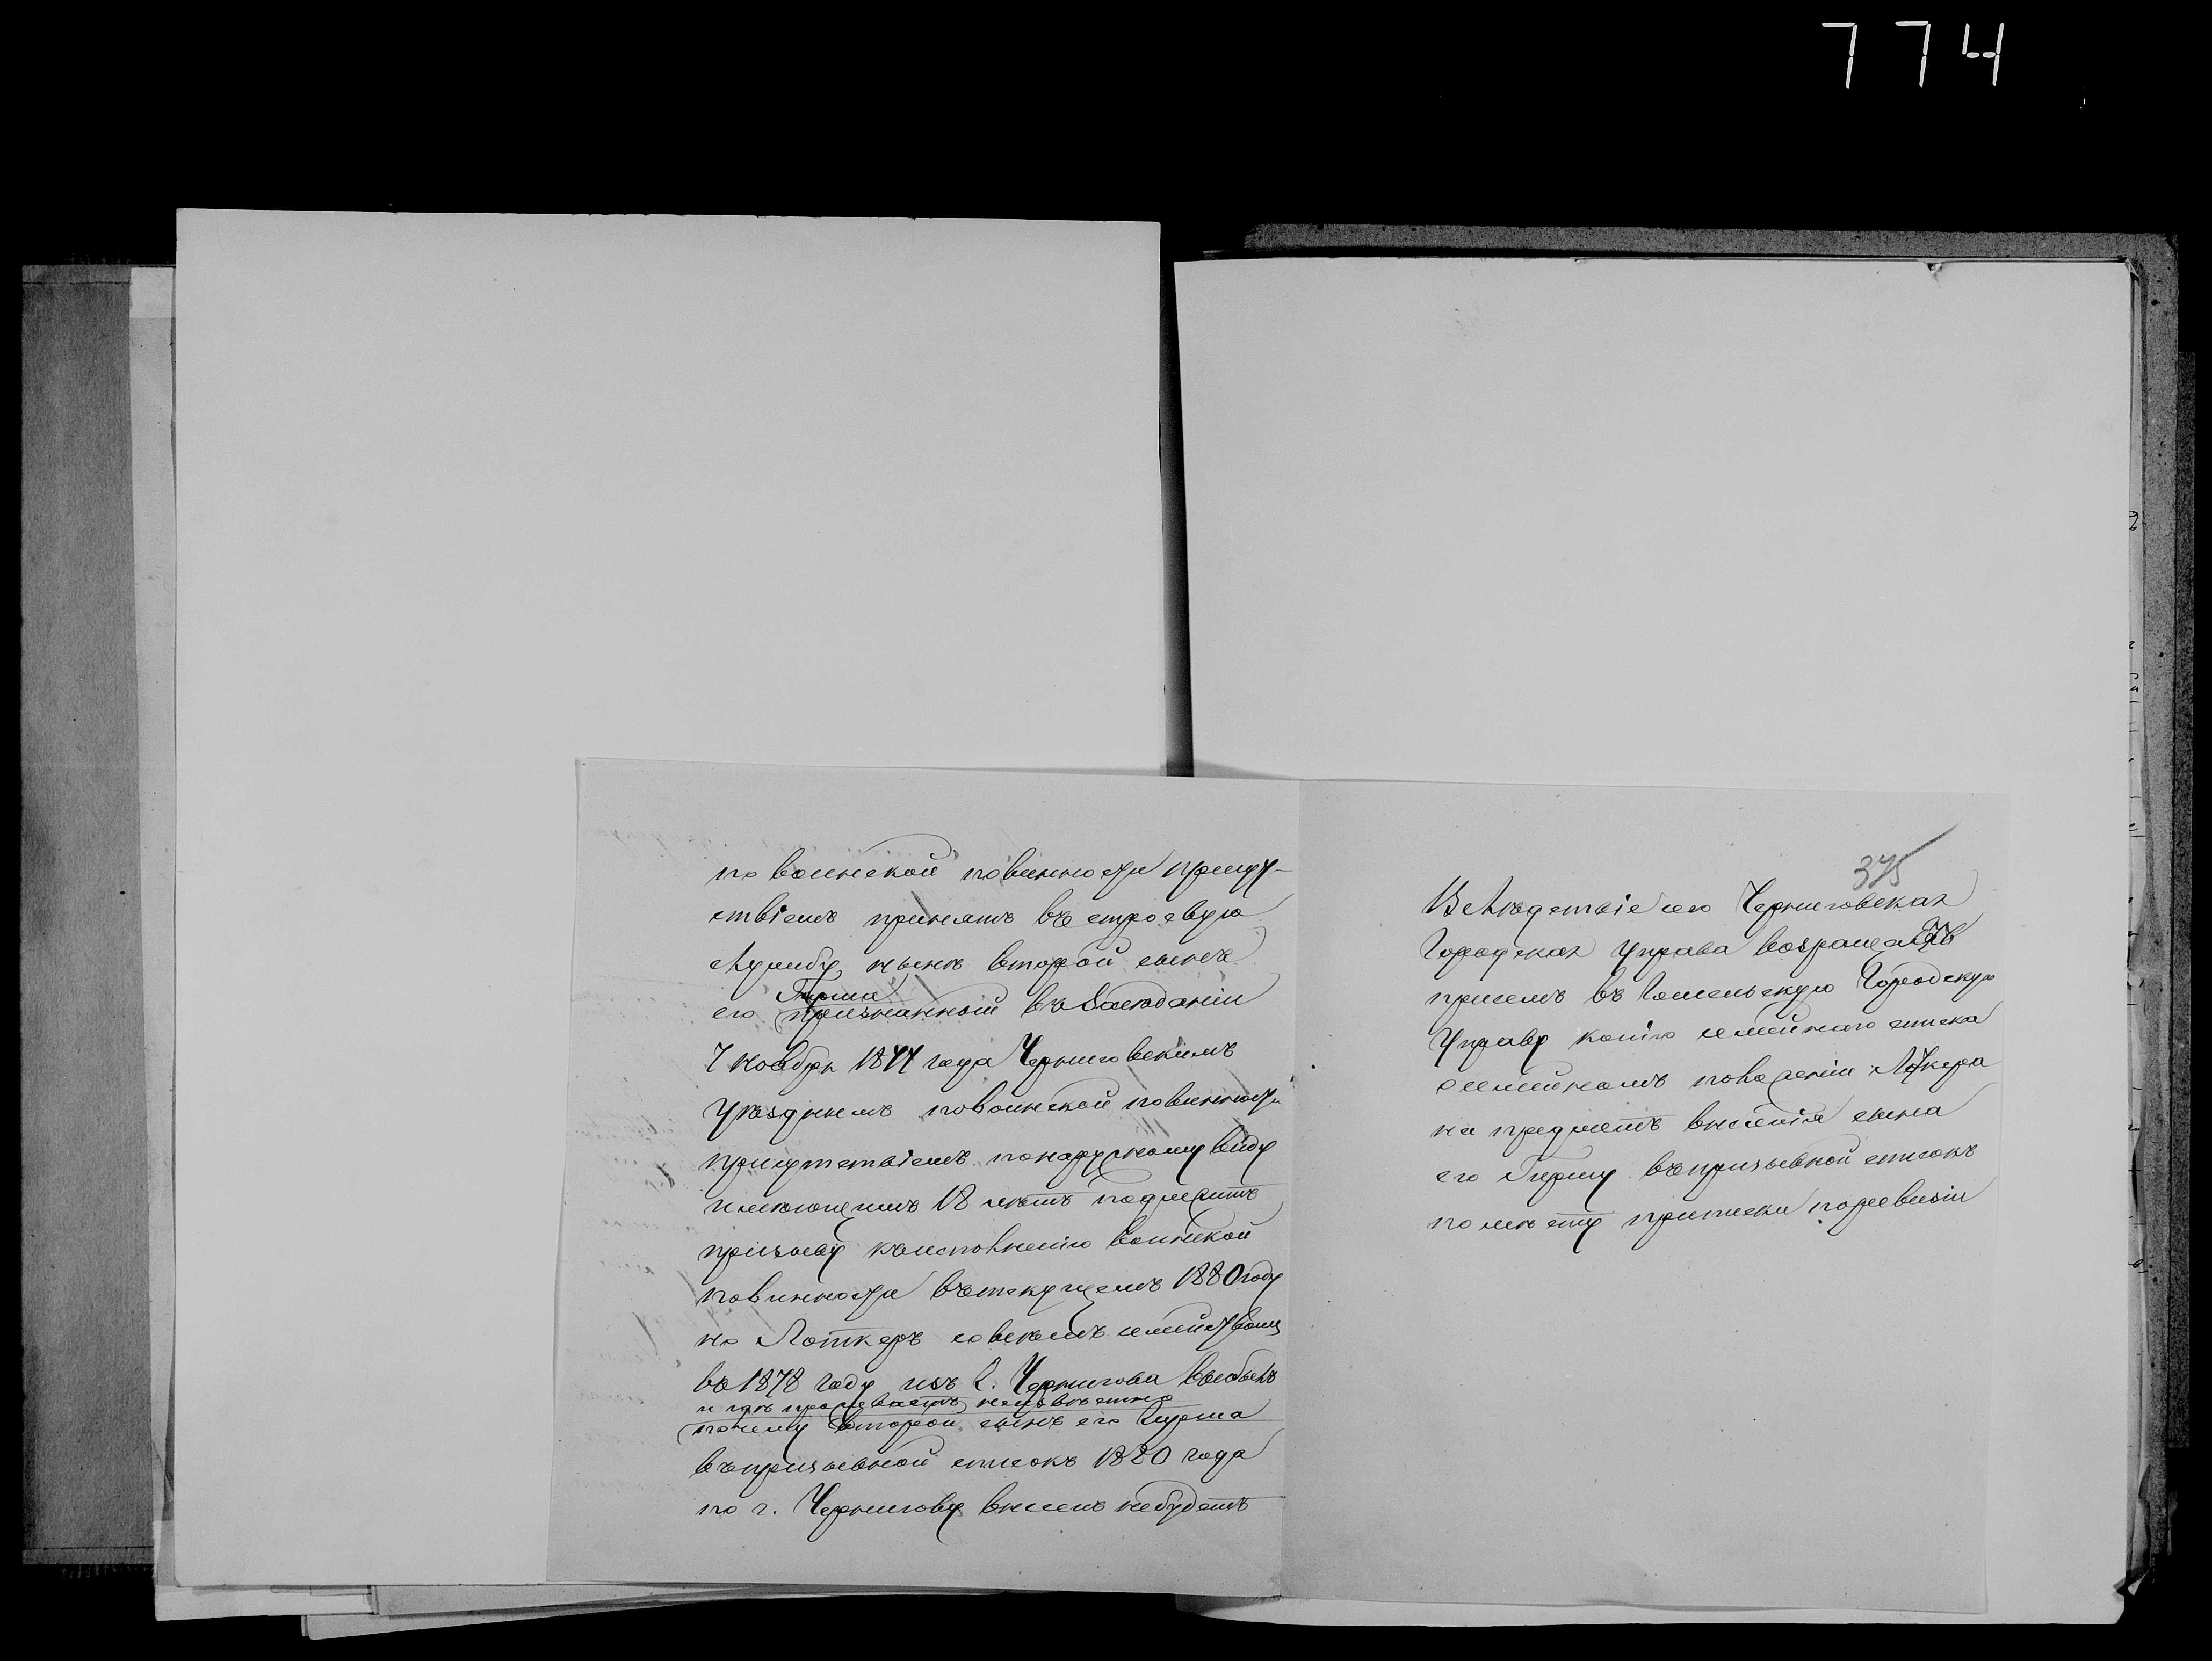 774
по воинской повинности присут-
ствіемъ принятъ въ строевую
службу, нынѣ второй сынъ
Гирша
его признанный въ Засѣданіи
7 ноября 1877 года Черниговскимъ
уѣзднымъ по воинской повинности
присутствіемъ по наружному виду
имѣющимъ 18 лѣтъ подлежитъ
призыву къ исполненію воинской
повинности въ текущемъ 1880 году
но Лоткеръ со всѣмъ семействомъ
въ 1878 году изъ г. Чернигова выбылъ
и гдѣ проживаетъ неизвѣстно
почему второй сынъ его Гирша
въ призывной списокъ 1880 года
по г. Чернигову внесенъ не будетъ
375
Вслѣдствіе сего Черниговская
Городская Управа возращаетъ
присемъ въ Гомельскую Городскую
Управу копію семейнаго списка
о семейномъ положеніи Лоткера
на предметъ внесенія сына
его Гиршу въ призывной списокъ
по мѣсту приписки по ревизіи